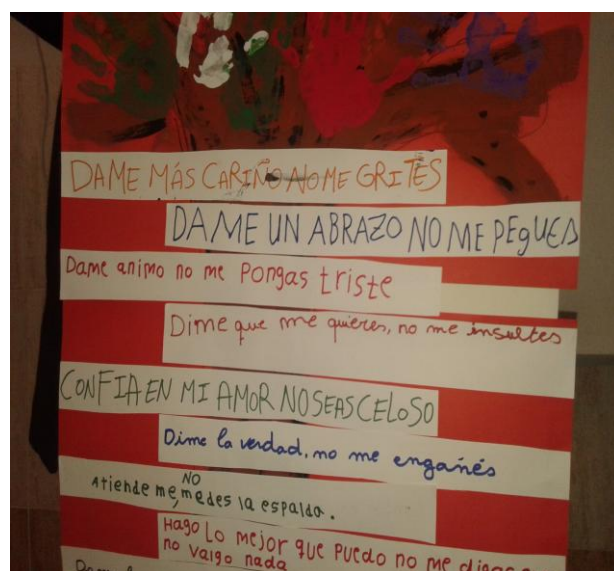 DAME MÁS CARIÑO NO ME GRITES
DAME UN ABRAZO NO ME PEgUES
Dame animo no me Pongas triste
Dime que me quieres, no me insultes
CONFIA EN MI AMOR NO SEAS CELOSO
Dime la verdad, no me engañés
Atiende me, NO me des la espalda.
Hago Lo mejor que Puedo no me digas
no valgo nada